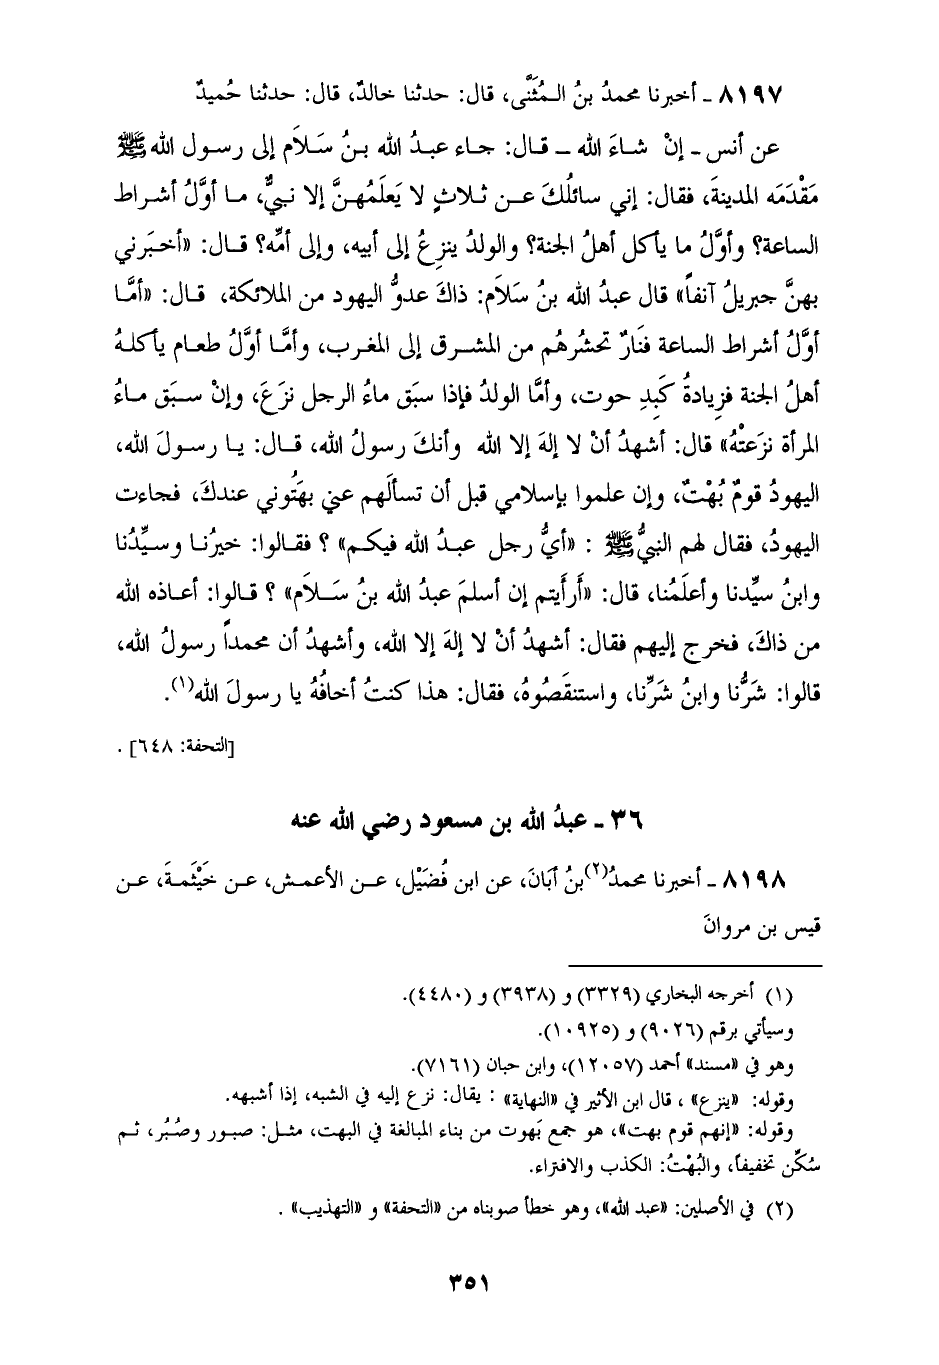 ٨١٩٧ ـ أخبرنا محمدُ بنُ الـمُثَنَّى، قال: حدثنا خالدٌ، قال: حدثنا حُميدٌ
عن أنس ـ إنْ شاءَ الله ـ قال: جاء عبدُ الله بنُ سَلاَم إلى رسول الله ﷺ
مَقْدَمَه المدينةَ، فقال: إني سائلُكَ عن ثلاثٍ لا يَعلَمُهنَّ إلا نبيٌّ، ما أوَّلُ أشراط
الساعة؟ وأوَّلُ ما يأكل أهلُ الجنة؟ والولدُ ينزِعُ إلى أبيه، وإلى أمِّه؟ قال: «أخبَرني
بهنَّ جبريلُ آنفاً» قال عبدُ الله بنُ سَلاَم: ذاكَ عدوُّ اليهود من الملائكة، قال: «أمَّا
أوَّلُ أشراط الساعة فنَارٌ تحشُرهُم من المشرق إلى المغرب، وأمَّا أوَّلُ طعام يأكلهُ
أهلُ الجنة فزِيادةُ كَبِدِ حوت، وأمَّا الولدُ فإذا سبَق ماءُ الرجل نزَعَ، وإنْ سبَق ماءُ
المرأة نزَعتْهُ» قال: أشهدُ أنْ لا إلهَ إلا الله وأنكَ رسولُ الله، قال: يا رسولَ الله،
اليهودُ قومٌ بُهْتٌ، وإن علموا بإسلامي قبل أن تسألَهم عني بهَتُوني عندكَ، فجاءت
اليهودُ، فقال لهم النبيُّ ﷺ : «أيُّ رجل عبدُ الله فيكم» ؟ فقالوا: خيرُنا وسيِّدُنا
وابنُ سيِّدنا وأعلَمُنا، قال: «أَرأَيتم إن أسلمَ عبدُ الله بنُ سَلاَم» ؟ قالوا: أعاذه الله
من ذاكَ، فخرج إليهم فقال: أشهدُ أنْ لا إلهَ إلا الله، وأشهدُ أن محمداً رسولُ الله،
قالوا: شَرُّنا وابنُ شَرِّنا، واستنقَصُوهُ، فقال: هذا كنتُ أخافُهُ يا رسولَ الله(١).
[التحفة: ٦٤٨] .
٣٦ ـ عبدُ الله بن مسعود رضي الله عنه
٨١٩٨ ـ أخبرنا محمدُ(٢) بنُ أبَانَ، عن ابن فُضَيْل، عن الأعمش، عن خَيْثَمةَ، عن
قيس بن مروانَ
(١) أخرجه البخاري (٣٣٢٩) و (٣٩٣٨) و (٤٤٨٠).
وسيأتي برقم (٩٠٢٦) و (١٠٩٢٥).
وهو في «مسند» أحمد (١٢٠٥٧)، وابن حبان (٧١٦١).
وقوله: «ينزع» ، قال ابن الأثير في «النهاية» : يقال: نزع إليه في الشبه، إذا أشبهه.
وقوله: «إنهم قوم بهت»، هو جمع بَهوت من بناء المبالغة في البهت، مثل: صبور وصُبُر، ثم
سُكِّن تخفيفاً، والبُهْتُ: الكذب والافتراء.
(٢) في الأصلين: «عبد الله»، وهو خطأ صوبناه من «التحفة» و «التهذيب» .
٣٥١